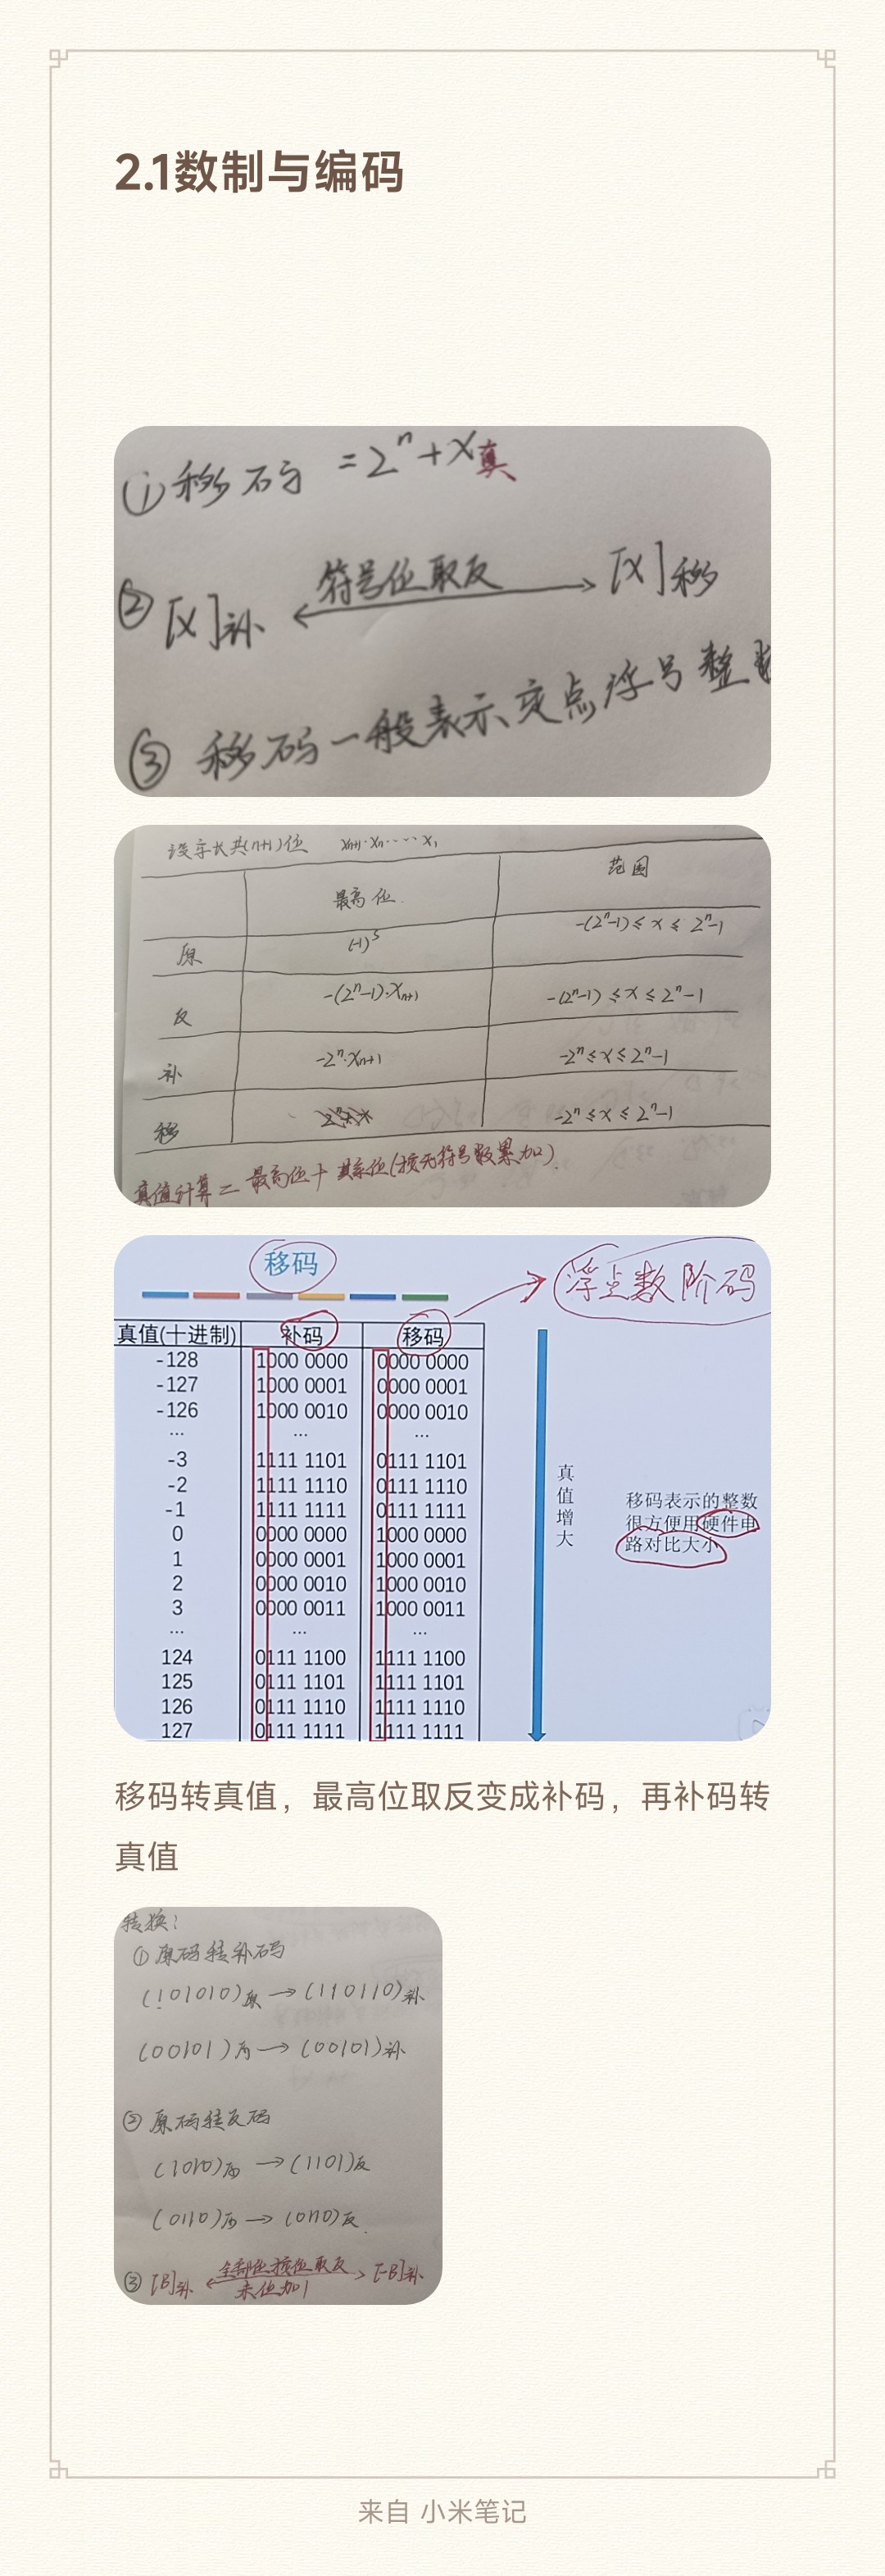 2.1数制与编码
① 移码 = 2ⁿ + X真
② [X]补 符号位取反 [X]移
③ 移码一般表示定点浮号整数
设字长共(n+1)位 Xn+1·Xn·····X1
最高位 范围
原 (-1)ˢ -(2ⁿ-1) ≤ x ≤ 2ⁿ-1
反 -(2ⁿ-1)·Xn+1 -(2ⁿ-1) ≤ x ≤ 2ⁿ-1
补 -2ⁿ·Xn+1 -2ⁿ ≤ x ≤ 2ⁿ-1
移 -2ⁿ ≤ x ≤ 2ⁿ-1
真值计算 = 最高位 + 其余位(按无符号数累加).
移码
浮点数阶码
真值(十进制) 补码 移码
-128 1000 0000 0000 0000
-127 1000 0001 0000 0001
-126 1000 0010 0000 0010
... ... ...
-3 1111 1101 0111 1101
-2 1111 1110 0111 1110
-1 1111 1111 0111 1111
0 0000 0000 1000 0000
1 0000 0001 1000 0001
2 0000 0010 1000 0010
3 0000 0011 1000 0011
... ... ...
124 0111 1100 1111 1100
125 0111 1101 1111 1101
126 0111 1110 1111 1110
127 0111 1111 1111 1111
真
值
增
大
移码表示的整数
很方便用硬件电
路对比大小
移码转真值，最高位取反变成补码，再补码转
真值
转换:
① 原码转补码
(101010)原 → (110110)补
(00101)原 → (00101)补
② 原码转反码
(1010)原 → (1101)反
(0110)原 → (0110)反
③ [B]补 全部位按位取反 [-B]补
末位加1
来自 小米笔记